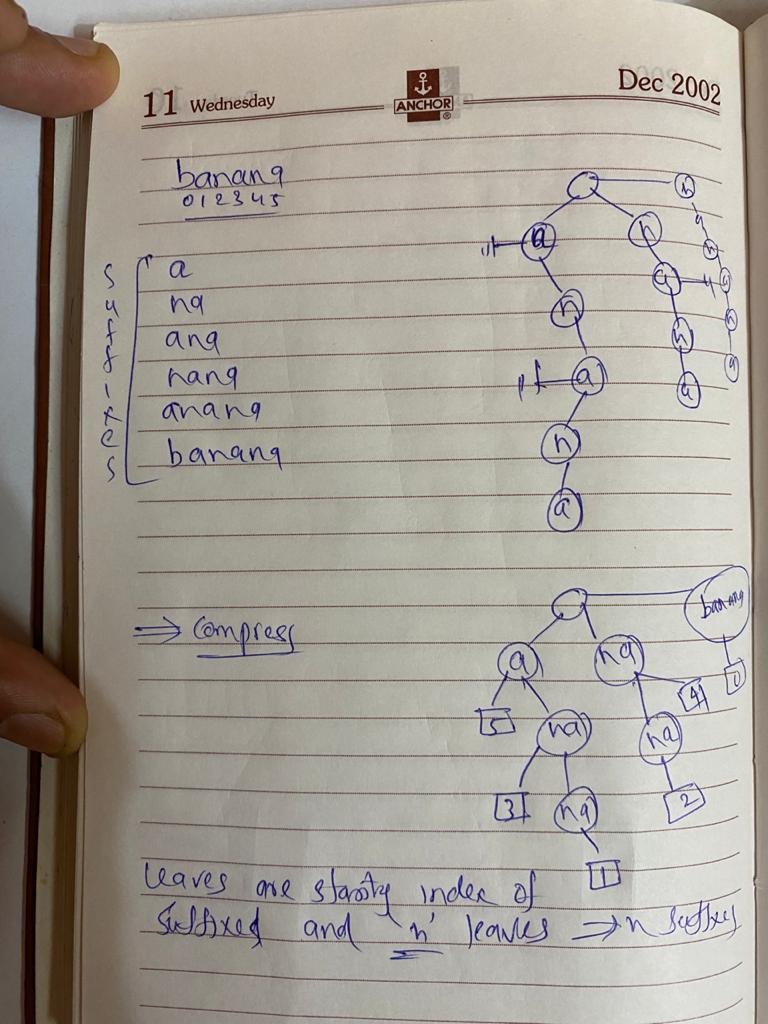 11 Wednesday
ANCHOR
®
Dec 2002
banana
012345
suffixes
a
na
ana
nana
anana
banana
n
a
n
a
n
a
n
a
n
a
n
a
n
a
n
a
⇒ Compress
banana
a
na
0
4
5
na
na
3
na
2
1
leaves are starting index of
suffixes and 'n' leaves ⇒ n suffixes